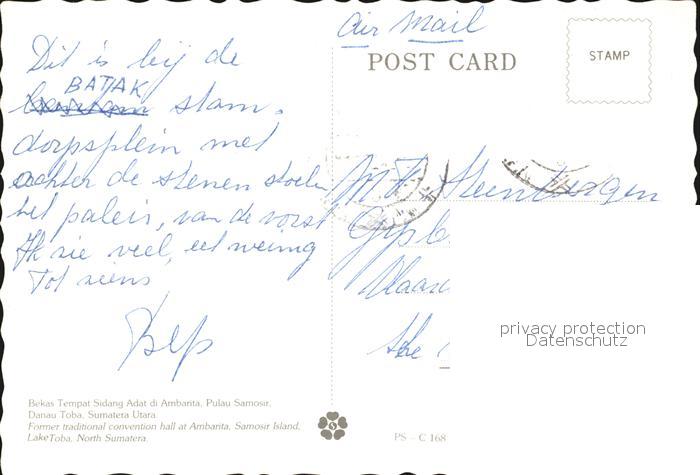 Air Mail
POST CARD
STAMP
Dit is bij de
BATAK
stam.
dorpsplein met
achter de stenen stoelen
het paleis, van de vorst
Ik zie veel, eet weinig
Tot ziens
Bep
privacy protection
Datenschutz
Bekas Tempat Sidang Adat di Ambarita, Pulau Samosir,
Danau Toba, Sumatera Utara.
Former traditional convention hall at Ambarita, Samosir Island,
Lake Toba, North Sumatera.
PS - C 168